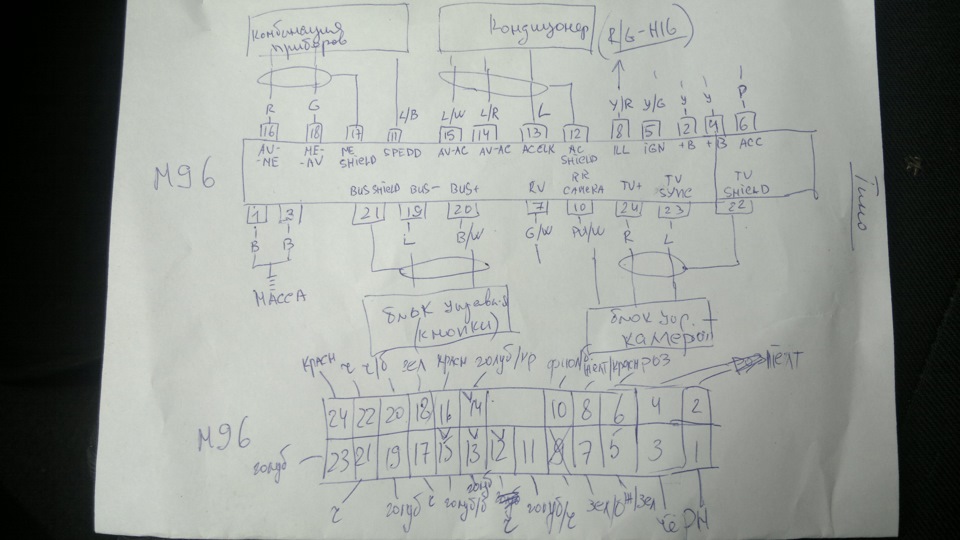 Комбинация
приборов
Кондиционер
(R/G-H16)
R G L/B L/W L/R L Y/R Y/G Y Y P
16 18 17 11 15 14 13 12 8 5 2 4 6
AV-ME ME-AV ME SHIELD SPEDD AV-AC AV-AC AC CLK AC SHIELD ILL IGN +B +B ACC
M96
BUS SHIELD BUS- BUS+ RV RR CAMERA TV+ TV SYNC TV SHIELD
1 3 21 19 20 7 10 24 23 22
B B L B/W G/W PU/W R L
МАССА
блок управл-я
(кнопки)
блок упр.
камерой
красн ч ч/б зел красн голуб/кр фиол желт/красн роз желт
24 22 20 18 16 14 10 8 6 4 2
M96
23 21 19 17 15 13 12 11 9 7 5 3 1
голуб
ч голуб ч голуб/б голуб ч голуб/ч зел/б ж/зел чёрн